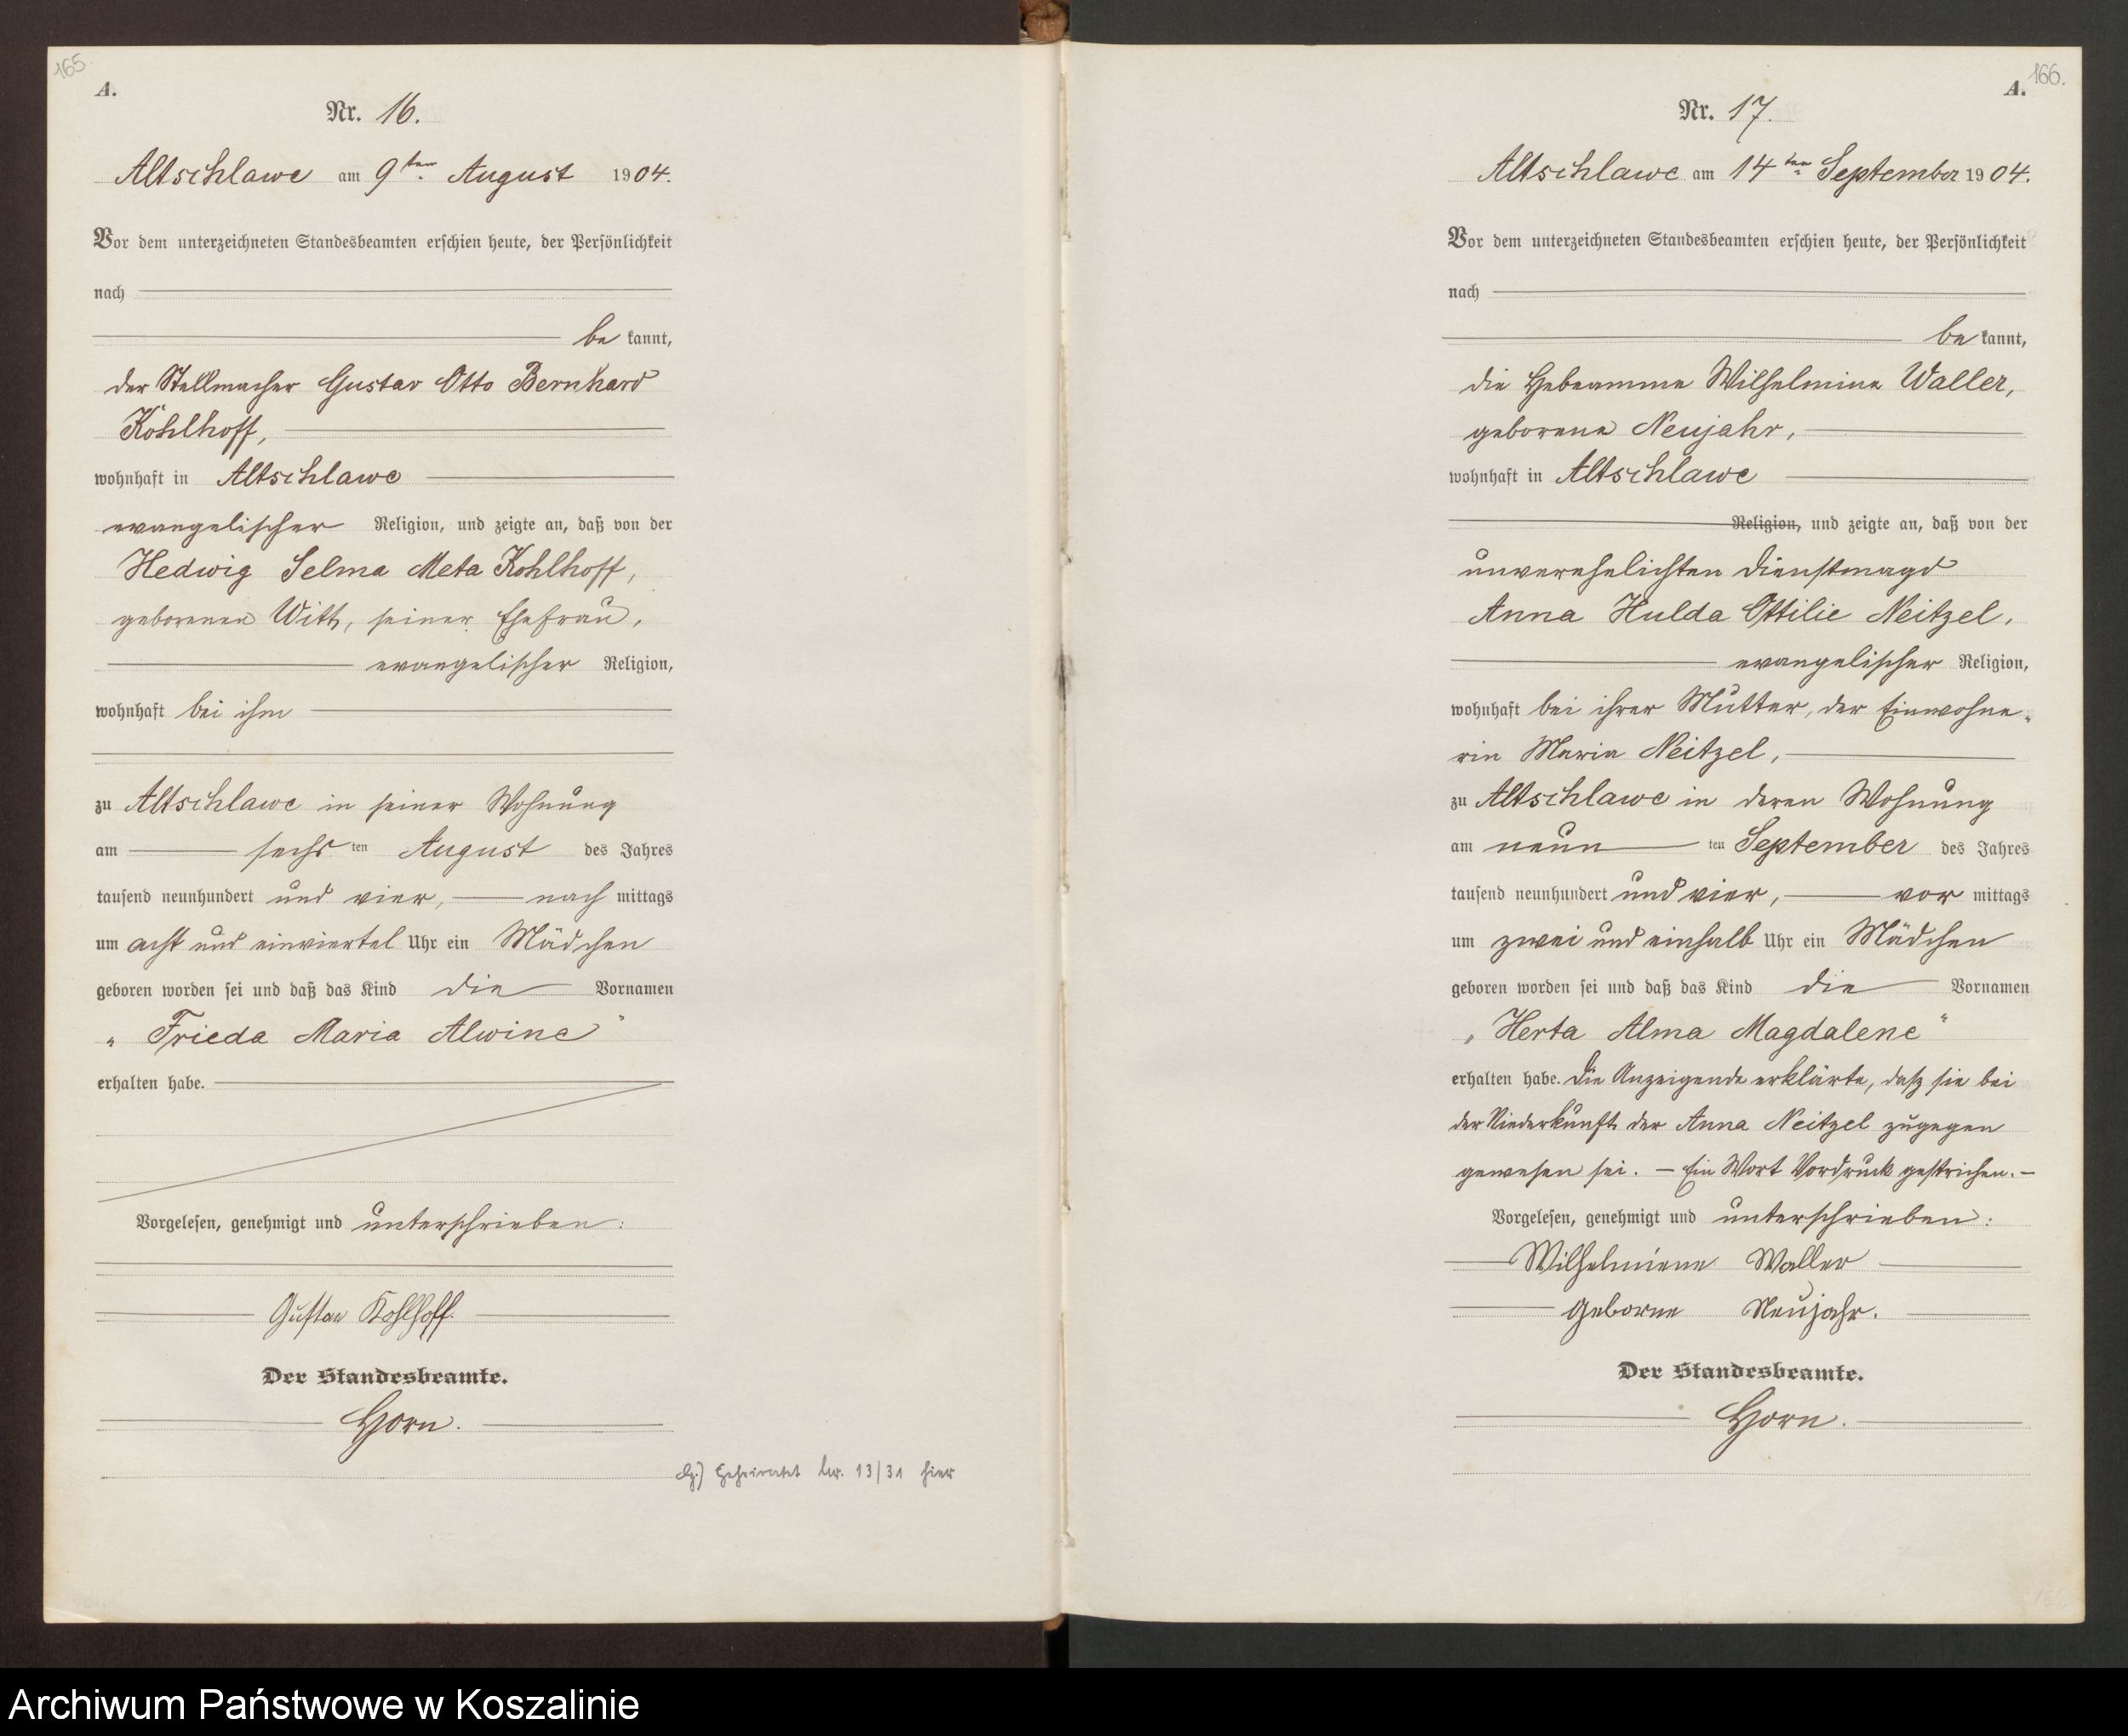 165.
A.
Nr. 16.
Altschlawe am 9ten August 1904.
Vor dem unterzeichneten Standesbeamten erschien heute, der Persönlichkeit
nach
be kannt,
der Stellmacher Gustav Otto Bernhard
Kohlhoff,
wohnhaft in Altschlawe
evangelischer Religion, und zeigte an, daß von der
Hedwig Selma Meta Kohlhoff,
geborenen Witt, seiner Ehefrau,
evangelischer Religion,
wohnhaft bei ihm
zu Altschlawe in seiner Wohnung
am sechs ten August des Jahres
tausend neunhundert und vier, nach mittags
um acht und einviertel Uhr ein Mädchen
geboren worden sei und daß das Kind die Vornamen
„Frieda Maria Alwine“
erhalten habe.
Vorgelesen, genehmigt und unterschrieben:
Gustav Kohlhoff.
Der Standesbeamte.
Horn.
Geheiratet Nr. 13/31 hier
166.
A.
Nr. 17.
Altschlawe am 14ten September 1904.
Vor dem unterzeichneten Standesbeamten erschien heute, der Persönlichkeit
nach
be kannt,
die Hebeamme Wilhelmine Waller,
geborene Neujahr,
wohnhaft in Altschlawe
Religion, und zeigte an, daß von der
unverehelichten Dienstmagd
Anna Hulda Ottilie Neitzel,
evangelischer Religion,
wohnhaft bei ihrer Mutter, der Einwohne-
rin Maria Neitzel,
zu Altschlawe in deren Wohnung
am neun ten September des Jahres
tausend neunhundert und vier, vor mittags
um zwei und einhalb Uhr ein Mädchen
geboren worden sei und daß das Kind die Vornamen
„Herta Alma Magdalene“
erhalten habe. Die Anzeigende erklärte, daß sie bei
der Niederkunft der Anna Neitzel zugegen
gewesen sei. — Ein Wort Vordruck gestrichen. —
Vorgelesen, genehmigt und unterschrieben:
Wilhelmiene Waller
Geborne Neujahr.
Der Standesbeamte.
Horn.
Archiwum Państwowe w Koszalinie